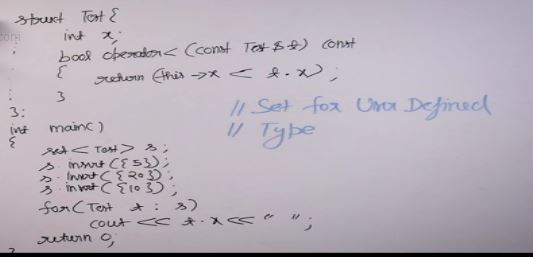 struct Test {
int x;
bool operator< (const Test &t) const
{
return (this->x < t.x);
}
};
int main()
{
set<Test> s;
s.insert({5});
s.insert({20});
s.insert({10});
for(Test t : s)
cout << t.x << " ";
return 0;
// Set for User Defined
// Type